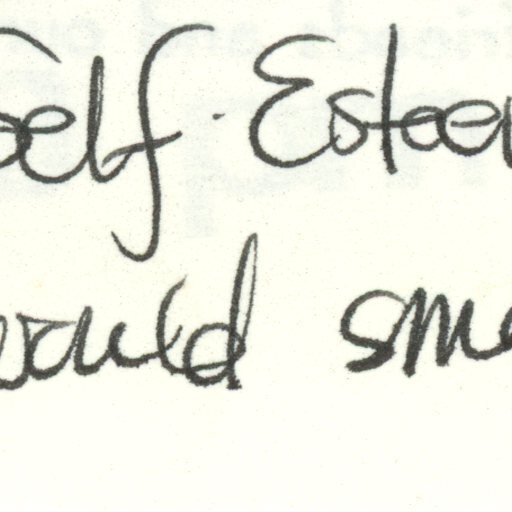 Self-Estee
would sm